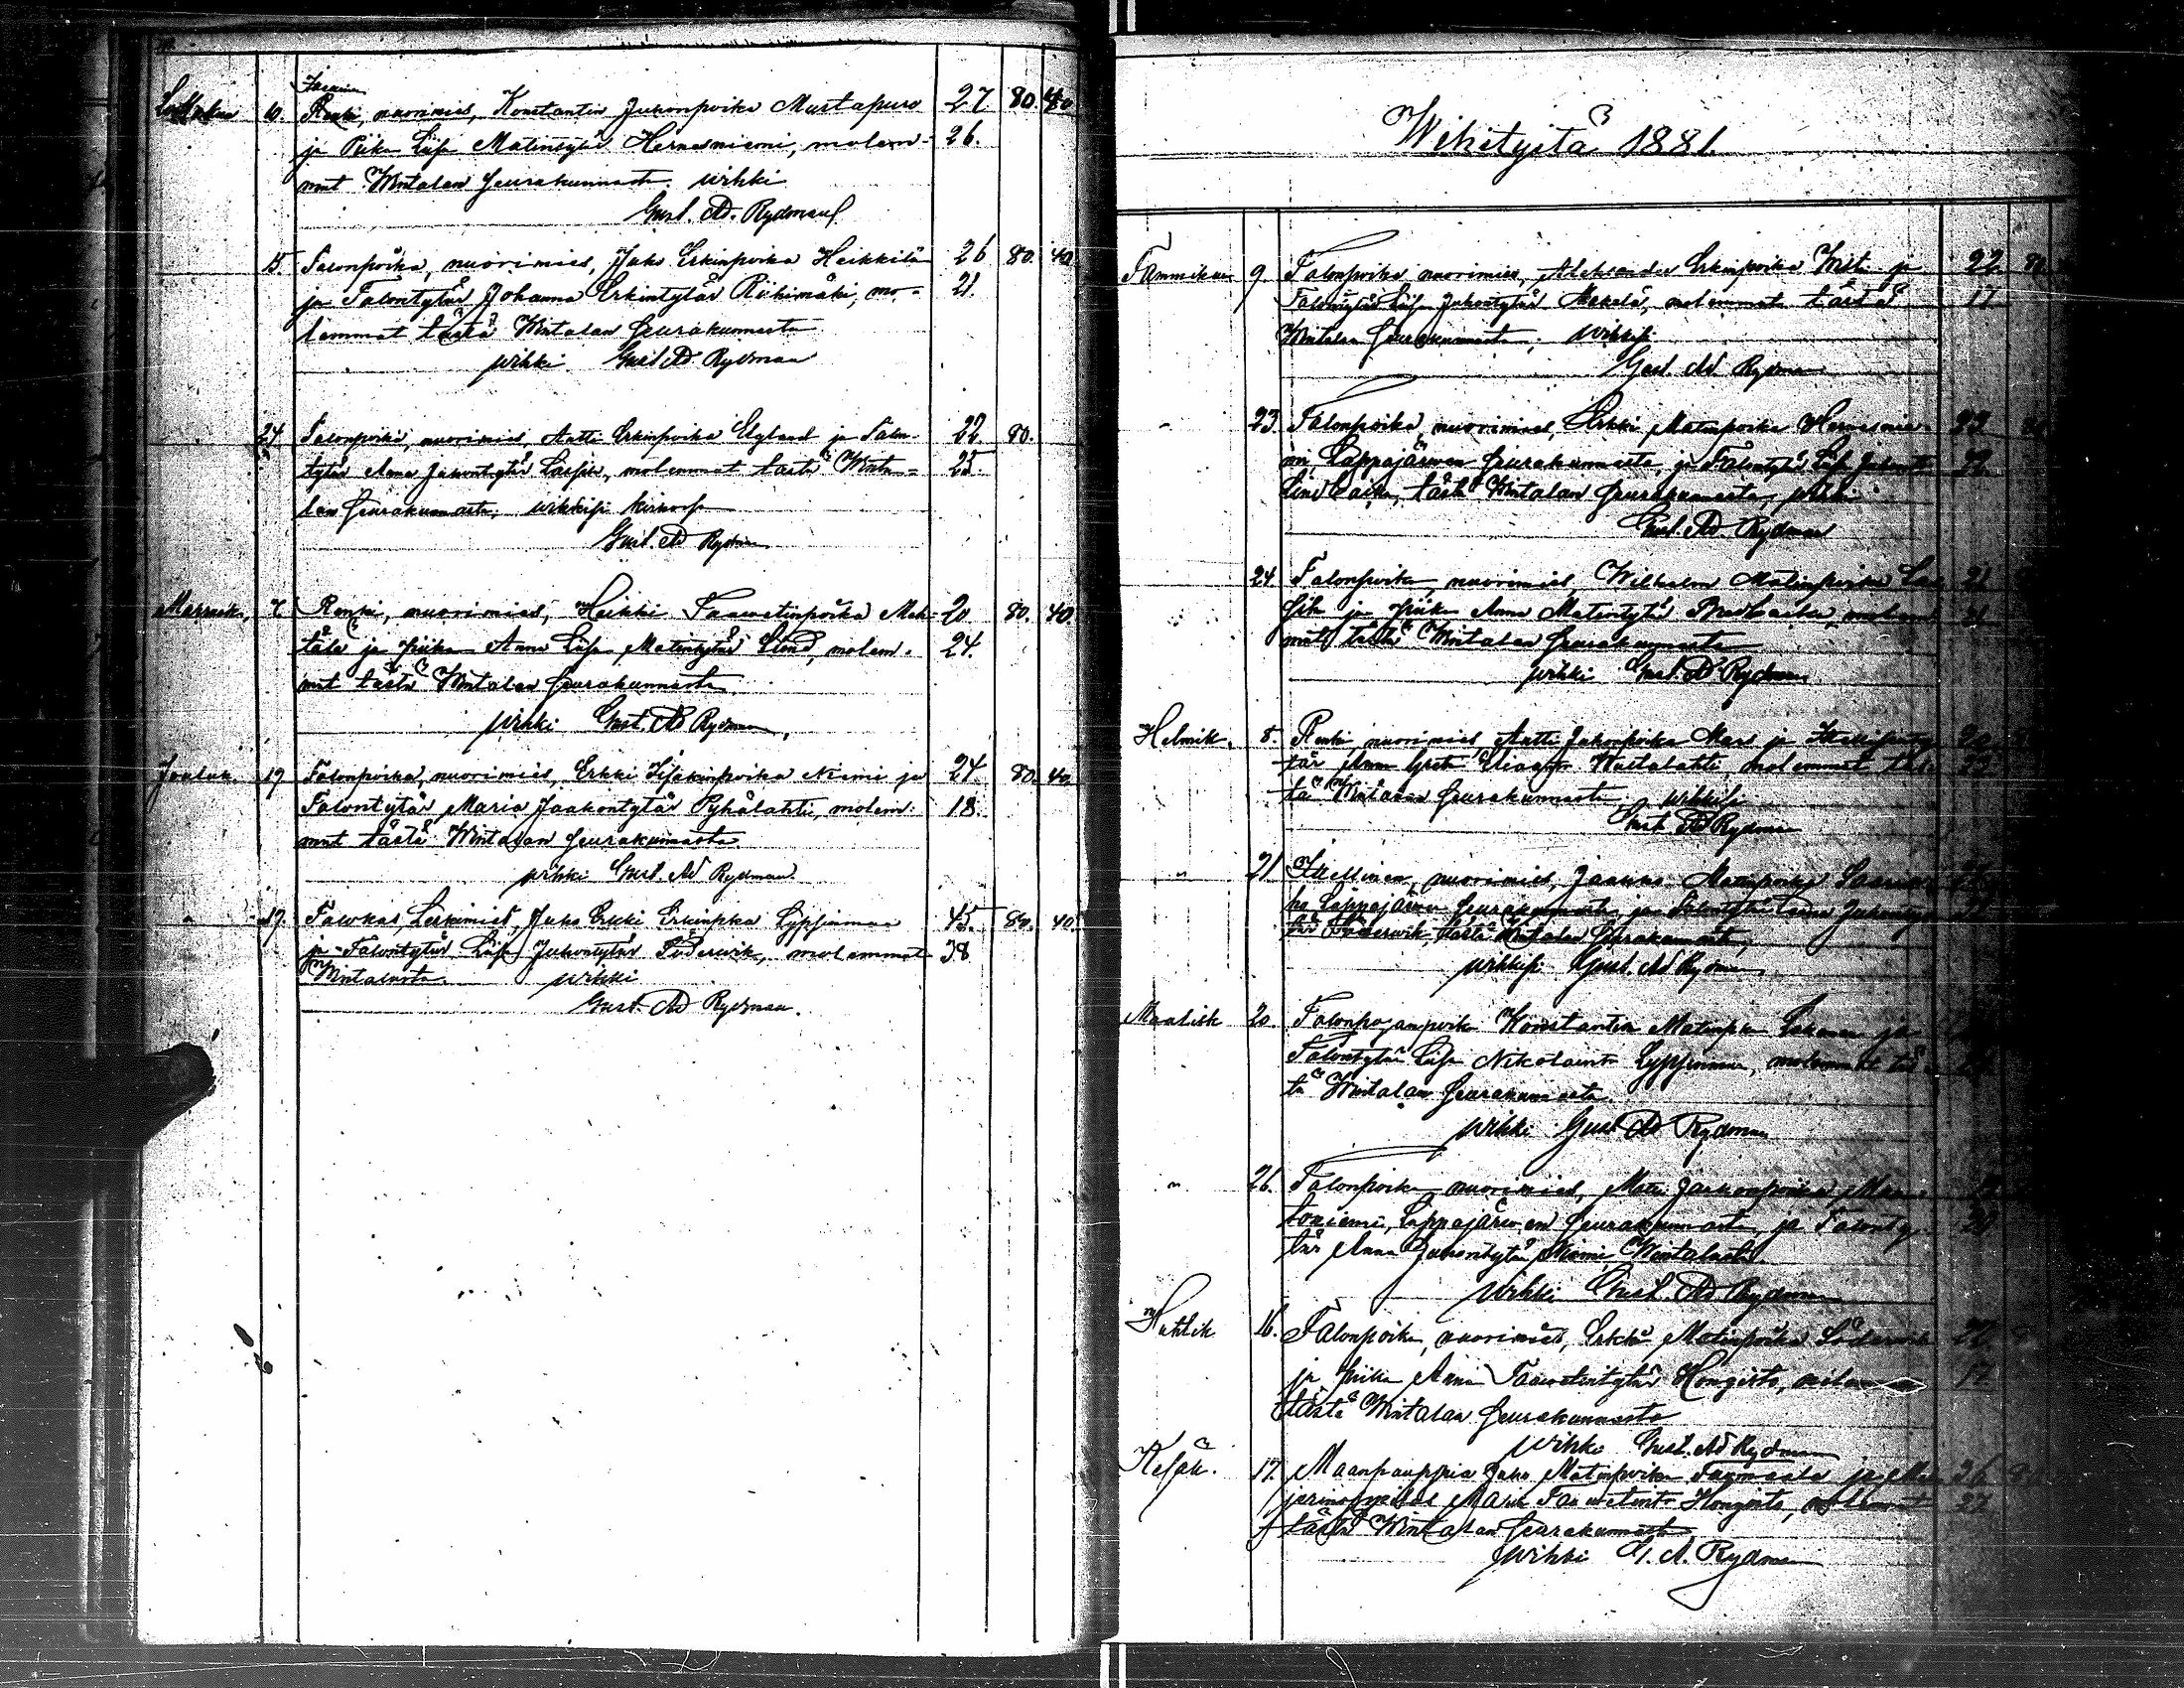 Lokakuu 10. Renki, nuorimies, Konstantin Juhonpoika Mustapuro 27. 80. 40
ja Piika Liisa Matintytär Hernesniemi, molem- 26.
mat Wintalan Seurakunnasta. wihki
Gust. Ad. Rydman
15. Talonpoika, nuorimies, Juho Erkinpoika Heikkilä 26 80. 40
ja Talontytär Johanna Erkintytär Riihimäki, mo- 21.
lemmat tästä Wintalan Seurakunnasta
wihki Gust. Ad. Rydman
24. Talonpoika, nuorimies, Antti Erkinpoika Elgland ja Talon- 22. 80.
tytär Anna Jaakontytär, molemmat tästä Winta- 25.
lan Seurakunnasta, wihkisi
Gust. Ad Rydman
Marrask. 7. Renki, nuorimies, Heikki Taawetinpoika Mah- 20 80. 40.
tala ja piika Anna Liisa Matintytär Lind, molem- 24.
mat tästä Wintalan Seurakunnasta
wihki Gust. Ad Rydman
Jouluk. 19 Talonpoika, nuorimies, Erkki Iisakinpoika Niemi ja 24. 80. 40
Talontytär Maria Jaakontytär Pyhälahti, molem- 18.
mat tästä Wintalan Seurakunnasta
wihki Gust. Ad Rydman
" 19. Talokas, Leskimies, Juho Erkki Erkinpka Lypsinmaa 45. 80. 40
ja Talontytär Liisa Juhontytär Söderwik, molemmat 38
Wintalasta. wihki
Gust. Ad Rydman.
Wihityitä 1881.
Tammikuu 9. Talonpoika nuorimies, Aleksander Erkinpoika Wisti ja 22. 80
Talontytär Liisa Juhontytär Mäkelä, molemmat tästä 17
Wintalan Seurakunnasta, wihkisi
Gust. Ad. Rydman
" 23. Talonpoika, nuorimies, Erkki Matinpoika Hernesnie-
mi Lappajärwen Seurakunnasta, ja Talontytär Liisa Juhont.
tästä Wintalan Seurakunnasta, wihki
Gust. Ad. Rydman
24. Talonpoika, nuorimies, Wilhelm Matinpoika 21
ja piika Anna Matintytär molem- 21
mat tästä Wintalan Seurakunnasta
wihki Gust. Ad Rydman
Helmik. 8. Renki, nuorimies Antti Juhonpoika ja
tär Anna Greta molemmat täs-
tä Wintalan Seurakunnasta, wihkisi
Gust. Ad Rydman
" 21 Itsellinen, nuorimies, Jaakko Matinpoika
Lappajärwen Seurakunnasta ja Talontytär Juhonty-
tär Söderwik tästä Wintalan Seurakunnasta,
wihkisi Gust. Ad Rydman
Maalisk 20. Talonpojanpoika Konstantin Matinpka ja
Talontytär Liisa Nikolaint. Lypsinmaa, molemmat täs-
tä Wintalan Seurakunnasta.
wihki Gust Ad Rydman
" 26. Talonpoika nuorimies, Matti Jaakonpoika
Lappajärwen Seurakunnasta, ja Talonty-
tär Anna Juhontytär Niemi Wintalasta.
wihki Gust. Ad. Rydman
Huhtik 16. Talonpoika, nuorimies, Erkki Matinpoika Söderwik 22.
ja piika Anna Taawetintytär Hongisto, molemmat 17
tästä Wintalan Seurakunnasta
wihki Gust. Ad Rydman
Kesäk. 17. Maankauppia Juho Matinpoika ja 26 80
Maria Taawetint. Hongisto, molemmat 22.
tästä Wintalan Seurakunnasta
wihki G. A. Rydman